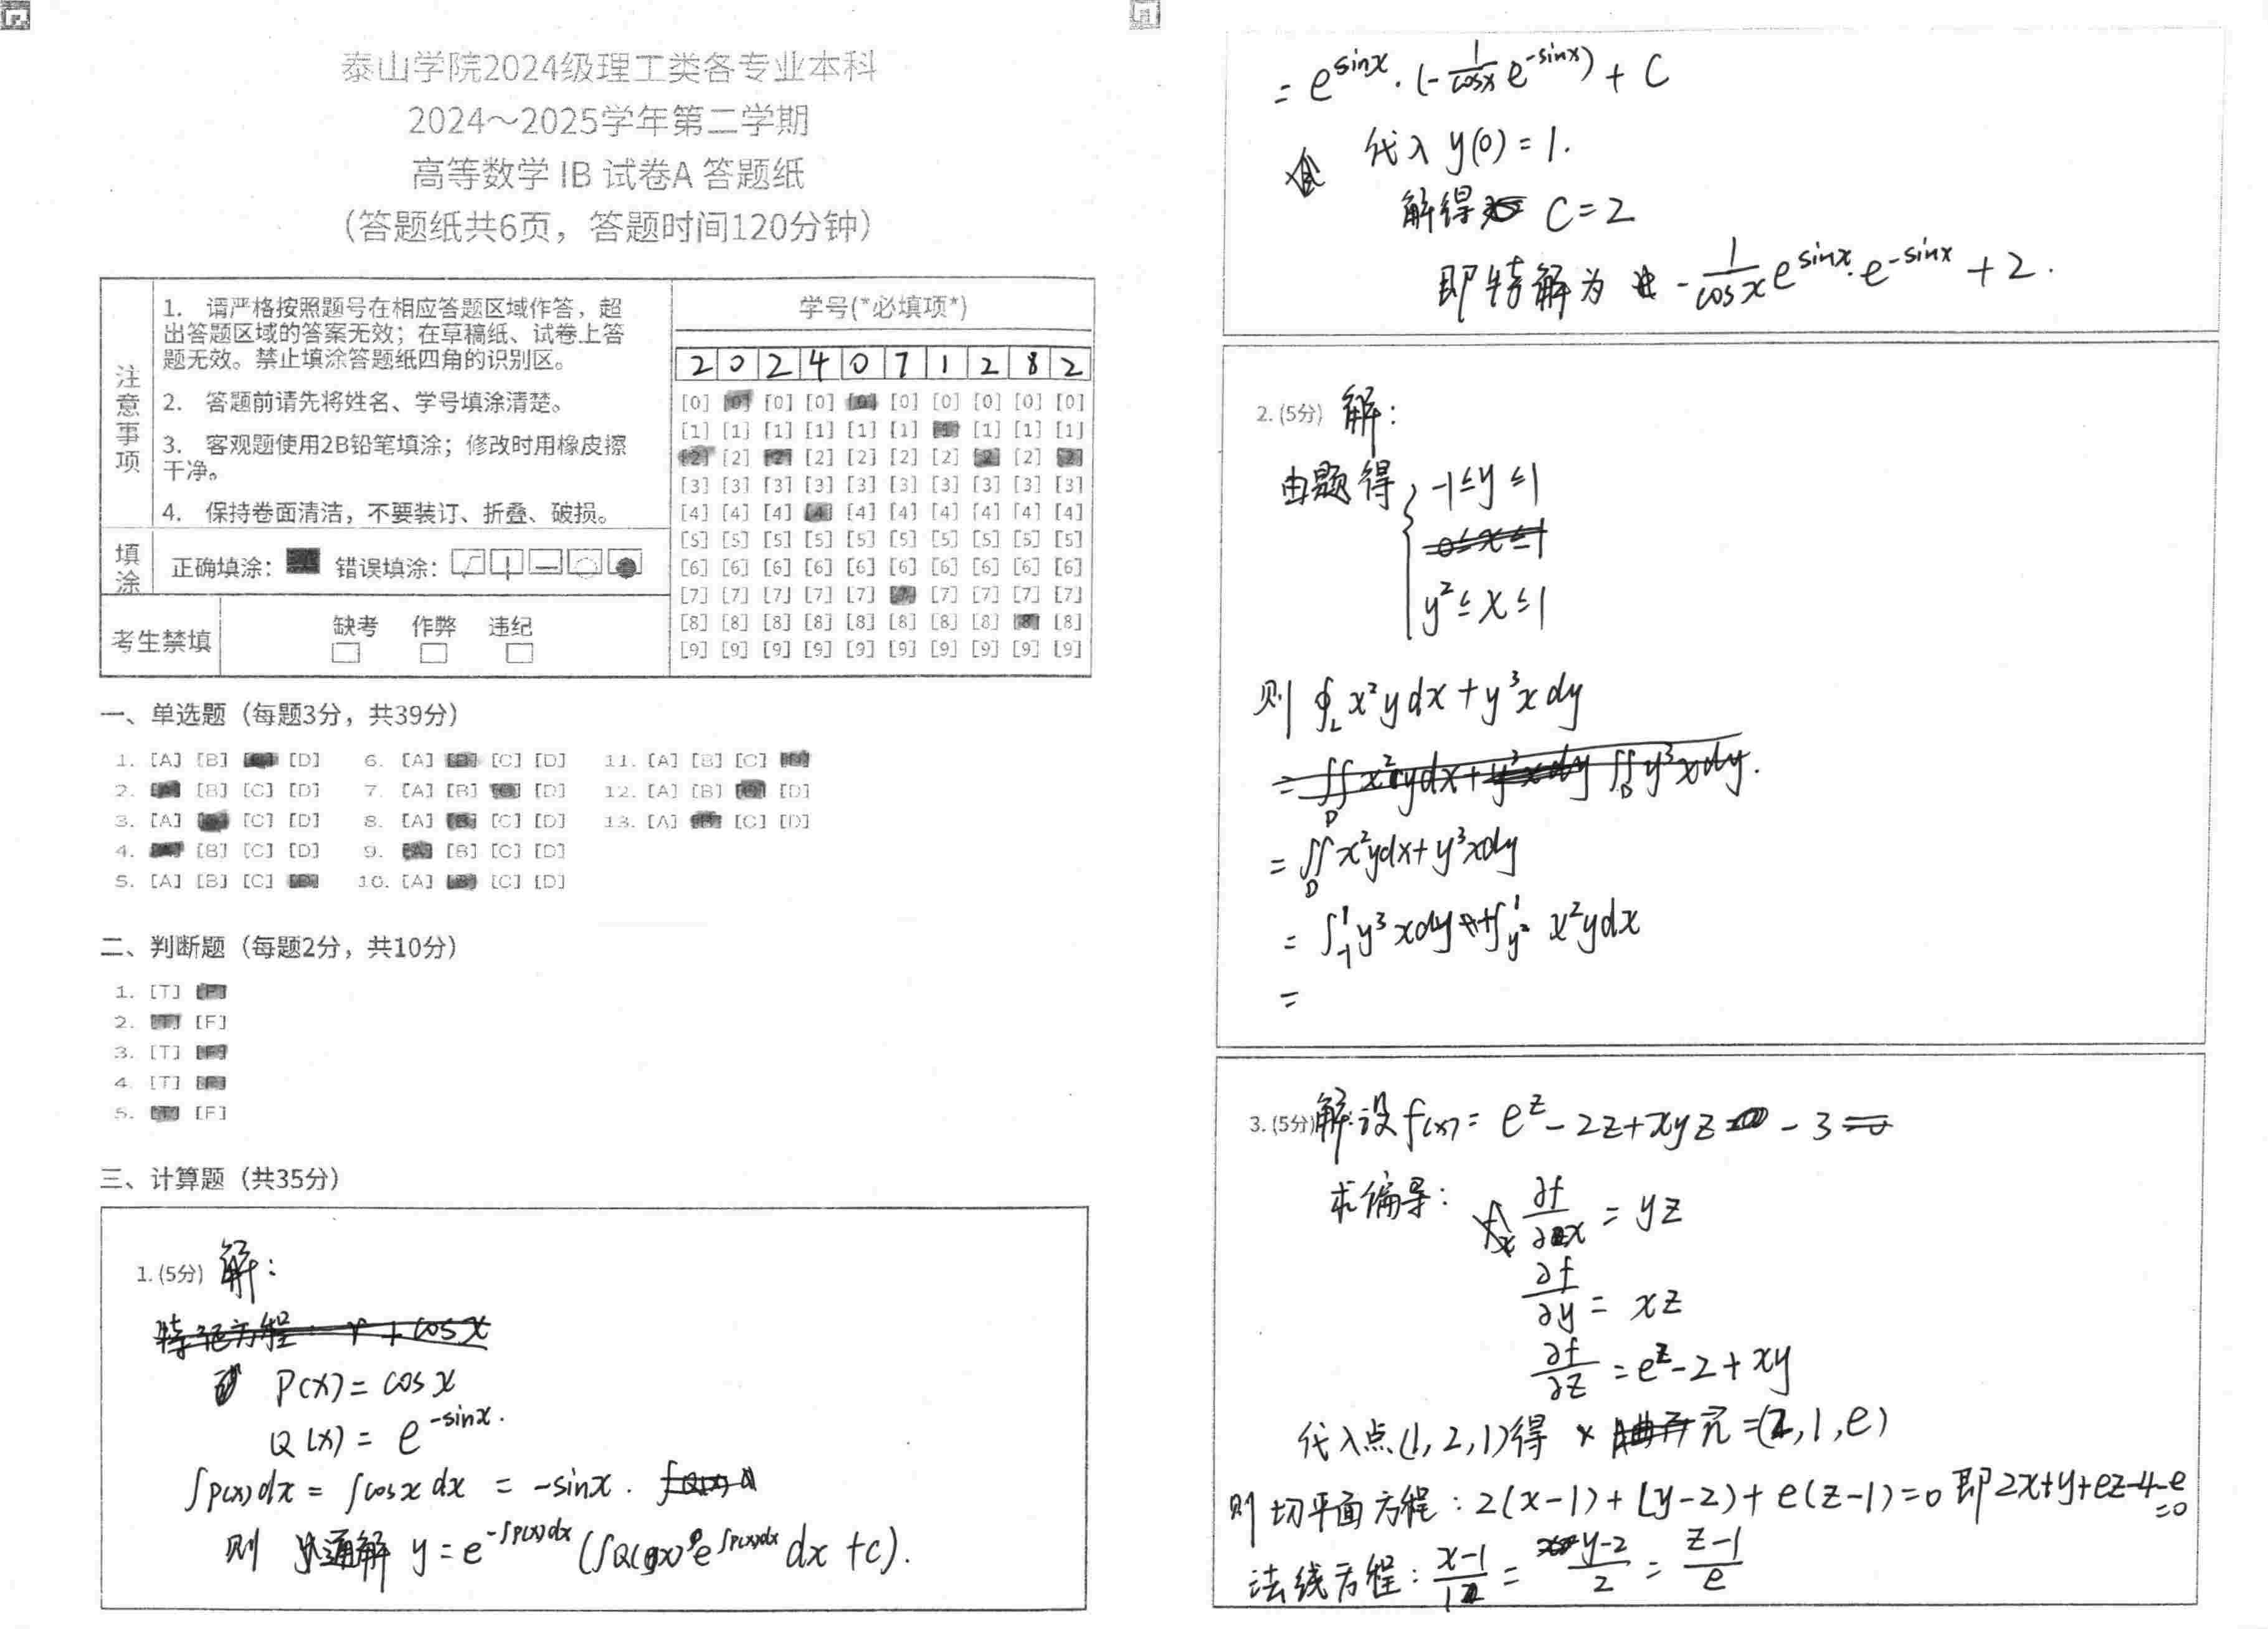 泰山学院2024级理工类各专业本科
2024～2025学年第二学期
高等数学 IB 试卷A 答题纸
（答题纸共6页，答题时间120分钟）
注意事项
1. 请严格按照题号在相应答题区域作答，超
出答题区域的答案无效；在草稿纸、试卷上答
题无效。禁止填涂答题纸四角的识别区。
2. 答题前请先将姓名、学号填涂清楚。
3. 客观题使用2B铅笔填涂；修改时用橡皮擦
干净。
4. 保持卷面清洁，不要装订、折叠、破损。
填涂 正确填涂： 错误填涂：
考生禁填 缺考 作弊 违纪
学号(*必填项*)
2 0 2 4 0 7 1 2 8 2
[0] [0] [0] [0] [0] [0] [0] [0] [0] [0]
[1] [1] [1] [1] [1] [1] [1] [1] [1] [1]
[2] [2] [2] [2] [2] [2] [2] [2] [2] [2]
[3] [3] [3] [3] [3] [3] [3] [3] [3] [3]
[4] [4] [4] [4] [4] [4] [4] [4] [4] [4]
[5] [5] [5] [5] [5] [5] [5] [5] [5] [5]
[6] [6] [6] [6] [6] [6] [6] [6] [6] [6]
[7] [7] [7] [7] [7] [7] [7] [7] [7] [7]
[8] [8] [8] [8] [8] [8] [8] [8] [8] [8]
[9] [9] [9] [9] [9] [9] [9] [9] [9] [9]
一、单选题（每题3分，共39分）
1. [A] [B] [C] [D] 6. [A] [B] [C] [D] 11. [A] [B] [C] [D]
2. [A] [B] [C] [D] 7. [A] [B] [C] [D] 12. [A] [B] [C] [D]
3. [A] [B] [C] [D] 8. [A] [B] [C] [D] 13. [A] [B] [C] [D]
4. [A] [B] [C] [D] 9. [A] [B] [C] [D]
5. [A] [B] [C] [D] 10. [A] [B] [C] [D]
二、判断题（每题2分，共10分）
1. [T] [F]
2. [T] [F]
3. [T] [F]
4. [T] [F]
5. [T] [F]
三、计算题（共35分）
1. (5分) 解：
特征方程 r + cosx
P(x) = cosx
Q(x) = e^{-sinx}.
∫P(x)dx = ∫cosx dx = -sinx.
则 通解 y = e^{-∫P(x)dx} (∫Q(x)·e^{∫P(x)dx} dx + c).
= e^{sinx}·(-\frac{1}{cosx} e^{-sinx}) + C
代入 y(0) = 1.
解得 C = 2
即特解为 -\frac{1}{cosx} e^{sinx}·e^{-sinx} + 2.
2. (5分) 解：
由题得 { -1≤y≤1
0≤x≤1
y²≤x≤1
则 ∮_L x²ydx + y³xdy
= ∬_D x²ydx + y³xdy ∬_D y³xdy.
= ∬_D x²ydx + y³xdy
= ∫_{-1}^{1} y³xdy + ∫_{y²}^{1} x²ydx
=
3. (5分) 解：设 f(x) = e^z - 2z + xyz - 3 = 0
求偏导： \frac{∂f}{∂x} = yz
\frac{∂f}{∂y} = xz
\frac{∂f}{∂z} = e^z - 2 + xy
代入点(1, 2, 1)得 n⃗ = (2, 1, e)
则切平面方程：2(x-1) + (y-2) + e(z-1) = 0 即 2x+y+ez-4-e=0
法线方程：\frac{x-1}{1} = \frac{y-2}{2} = \frac{z-1}{e}